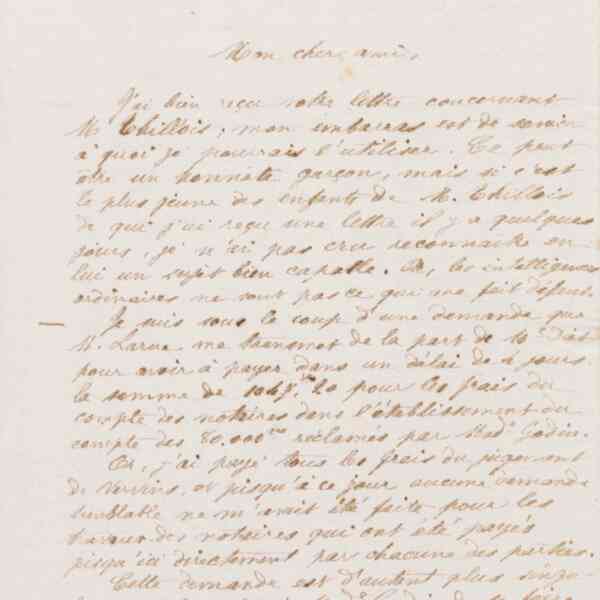 Mon cher ami,
J'ai bien reçu votre lettre concernant
M. Thillois ; mon embarras est de savoir
à quoi je pourrais l'utiliser. Ce peut
être un honnête garçon, mais si c'est
le plus jeune des enfants de M. Thillois
de qui j'ai reçu une lettre il y a quelques
jours, je n'ai pas cru reconnaître en
lui un sujet bien capable. Or, les intelligences
ordinaires ne sont pas ce qui me fait défaut.
Je suis sous le coup d'une demande que
M. Larue me transmet de la part de
pour avoir à payer dans un délai de 4 jours
la somme de pour les frais du
compte des notaires dans l'établissement du
compte des 80,000 fcs réclamés par Mad. Godin.
Or, j'ai payé tous les frais du jugement
de Vervins, et jusqu'à ce jour aucune demande
semblable ne m'avait été faite pour les
travaux des notaires qui ont été payés
jusqu'ici directement par chacune des parties.
Cette demande est d'autant plus